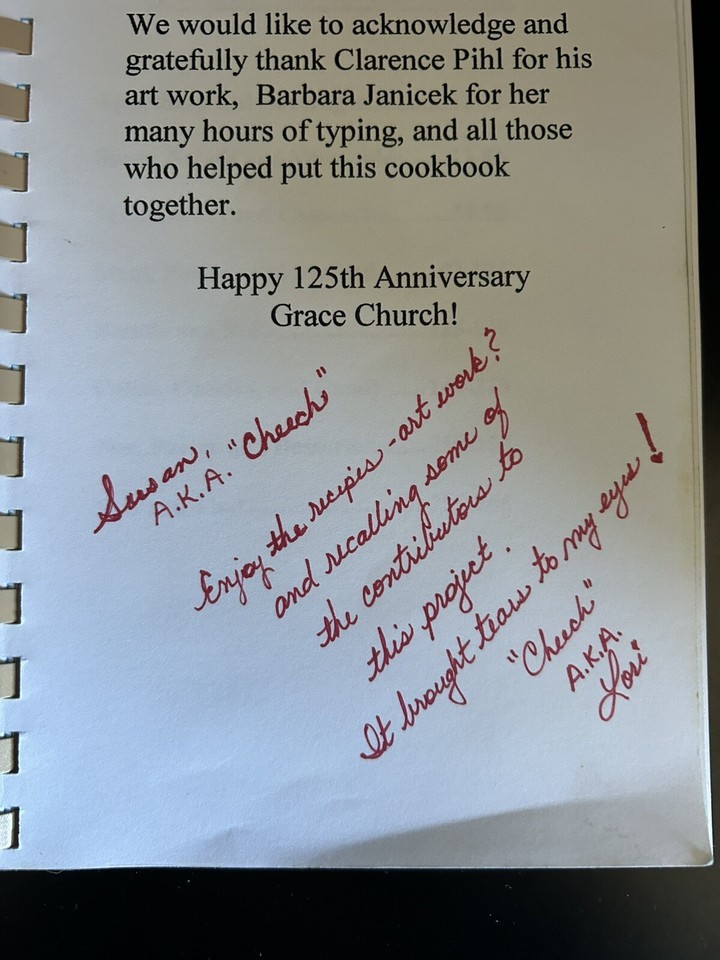 We would like to acknowledge and
gratefully thank Clarence Pihl for his
art work,  Barbara Janicek for her
many hours of typing, and all those
who helped put this cookbook
together.
Happy 125th Anniversary
Grace Church!
Susan,
A.K.A. "Cheech"
Enjoy the recipes - art work?
and recalling some of
the contributors to
this project.
It brought tears to my eyes!
"Cheech"
A.K.A.
Lori